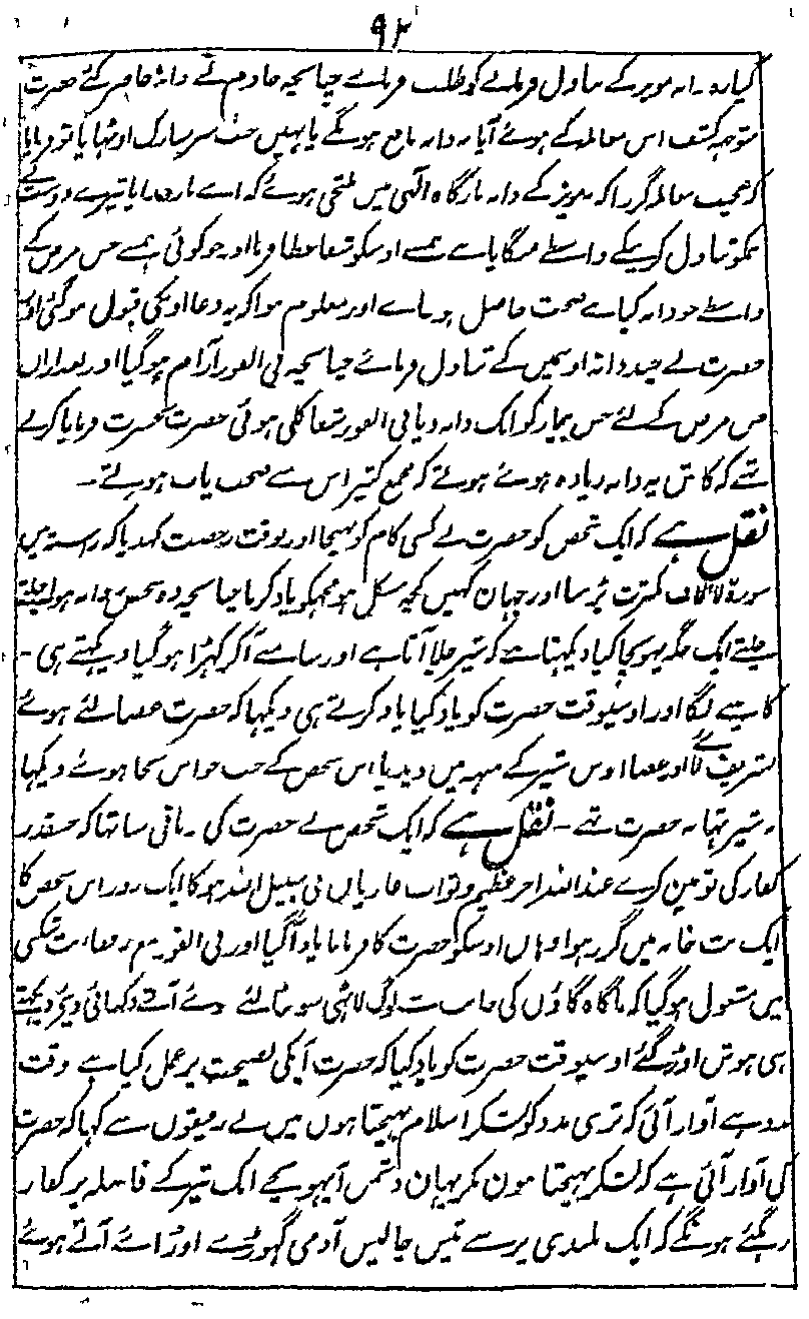 ۹۲
گیارہ دانہ مویز کے تناول فرمانے کو طلب فرمائے چنانچہ خادم نے دانہ حاضر کئے حضرت
متوجہ کشف اس معاملہ کے ہوئے آیا یہ دانہ نافع ہونگے یا نہیں جب سر مبارک اوٹھایا تو فرمایا
کہ عجیب معاملہ گزرا کہ مویز کے دانہ بارگاہ الٰہی میں ملتجی ہوئے کہ اے بار خدایا تیرے دوست نے
ہمکو تناول کرنیکے واسطے منگایا ہے ہمسے اوسکو شفا عطا فرما اور جو کوئی ہمسے جس مرض کے
واسطے جو دانہ کھاے صحت حاصل ہو جاے اور معلوم ہوا کہ یہ دعا اونکی قبول ہو گئی اور
حضرت نے چند دانہ اوسمیں کے تناول فرمائے چنانچہ فی الفور آرام ہو گیا اور بعد ازاں
جس مرض کے لئے جس بیمار کو ایک دانہ دیا فی الفور شفا کلی ہوئی حضرت بحسرت فرمایا کرتے
تھے کہ کاش یہ دانہ زیادہ ہوئے ہوتے کہ مجمع کثیر اس سے صحت یاب ہوتے۔
نقل ہے کہ ایک شخص کو حضرت نے کسی کام کو بھیجا اور بوقت رخصت کہدیا کہ رستہ میں
سورۃ لایلاف بکثرت پڑہنا اور جہان کہیں کچھ مشکل ہو مجھکو یاد کرنا چنانچہ وہ شخص روانہ ہوا چلتے
چلتے ایک جگہ پہونچا کیا دیکہتا ہے کہ شیر چلا آتا ہے اور سامنے آکر کہڑا ہو گیا دیکہتے ہی ۔
کانپنے لگا اور اوسیوقت حضرت کو یاد کیا یاد کرتے ہی دیکہا کہ حضرت عصا لئے ہوئے
تشریف لے آئے اور عصا اوس شیر کے منہہ میں دیدیا اس شخص کے جب حواس بجا ہوئے دیکہا
نہ شیر تہا نہ حضرت تہے ۔ نقل ہے کہ ایک شخص نے حضرت کی زبانی سنا تہا کہ جسقدر
کفار کی توہین کرے عند اللہ اجر عظیم و ثواب غازیان فی سبیل اللہ ہوگا ایک روز اس شخص کا
ایک بت خانہ میں گزر ہوا وہاں اوسکو حضرت کا فرمانا یاد آگیا اور فی الفور مع رفقاء بت شکنی
میں مشغول ہو گیا کہ ناگاہ گاؤں کی جانب سے لوگ لاٹہی سونٹا لئے ہوئے آتے دکہائی دیئے دیکہتے
ہی ہوش اوڑ گئے اوسیوقت حضرت کو یاد کیا کہ حضرت آپکی نصیحت پر عمل کیا ہے وقت
مدد ہے آواز آئی کہ تری مدد کو لشکر اسلام بہیجتا ہوں میں نے رفیقوں سے کہا کہ حضرت
کی آواز آئی ہے کہ لشکر بہیجتا ہون مگر یہان دشمن آپہونچے ایک تیر کے فاصلہ پر کفار
رہگئے ہونگے کہ ایک بلندی پر سے تیس چالیس آدمی گہوڑے اوڑائے آتے ہوئے